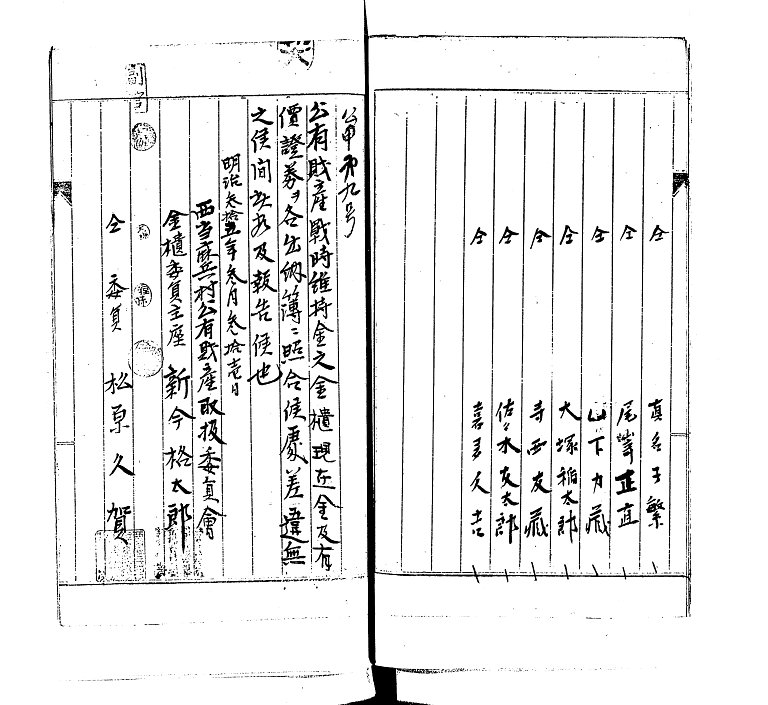 仝 真名子繁
仝 尾㟢正直
仝 山下力蔵
仝 大塚祐太郎
仝 寺西友蔵
仝 佐々木友太郎
仝 嘉 久吉
公甲第九号
公有財産戦時維持金之金櫃現在金及有
價證券ヲ各出納簿ニ照合候處差違無
之候間此段及報告候也
明治参拾五年参月参拾壱日
西當麻兵村公有財産取扱委員會
金櫃委員主座 新今格太郎
仝 委員 松原久賀